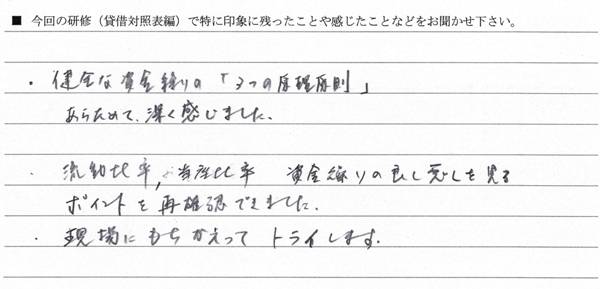 ■ 今回の研修（貸借対照表編）で特に印象に残ったことや感じたことなどをお聞かせ下さい。
・健全な資金繰りの「3つの原理原則」
あらためて、深く感じました。
・流動比率、当座比率 資金繰りの良し悪しを見る
ポイントを再確認できました。
・現場にもちかえって トライします。